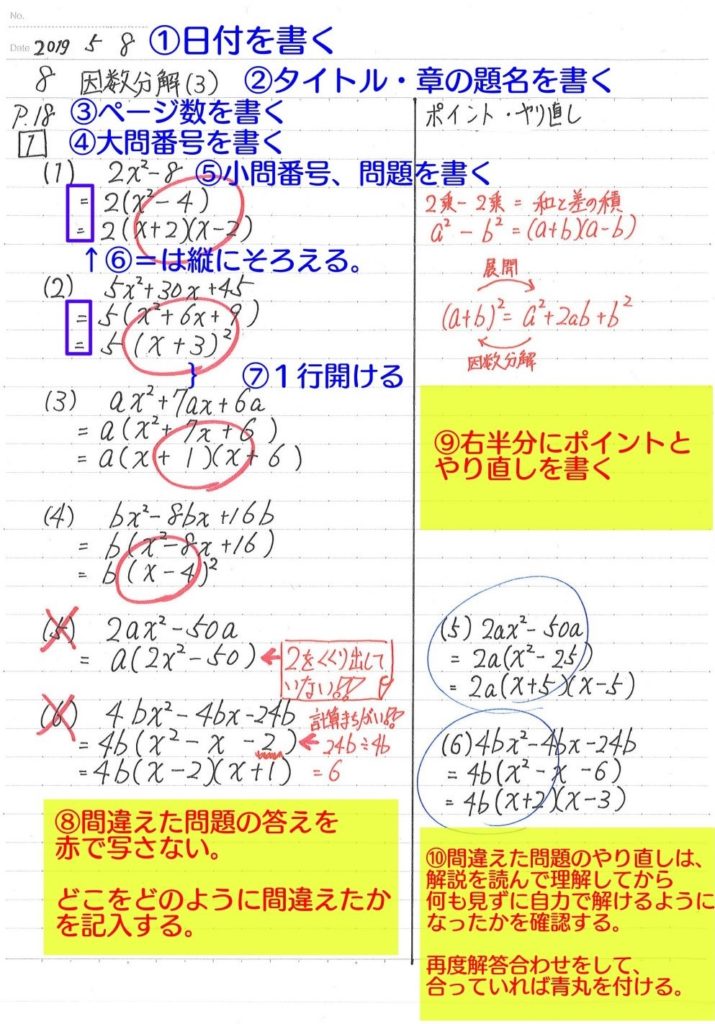 No.
Date 2019 5 8 ①日付を書く
8 因数分解(3) ②タイトル・章の題名を書く
P.18 ③ページ数を書く
1 ④大問番号を書く
(1) 2x²-8 ⑤小問番号、問題を書く
= 2(x²-4)
= 2(x+2)(x-2)
↑⑥＝は縦にそろえる。
(2) 5x²+30x+45
= 5(x²+6x+9)
= 5(x+3)²
} ⑦１行開ける
(3) ax²+7ax+6a
= a(x²+7x+6)
= a(x+1)(x+6)
(4) bx²-8bx+16b
= b(x²-8x+16)
= b(x-4)²
(5) 2ax²-50a
= a(2x²-50)
2をくくり出して
いない!!
(6) 4bx²-4bx-24b
計算まちがい!!
= 4b(x²-x-2)
24b÷4b
= 6
= 4b(x-2)(x+1)
⑧間違えた問題の答えを
赤で写さない。
どこをどのように間違えたか
を記入する。
ポイント・やり直し
2乗-2乗=和と差の積
a²-b²=(a+b)(a-b)
展開
(a+b)²=a²+2ab+b²
因数分解
⑨右半分にポイントと
やり直しを書く
(5) 2ax²-50a
= 2a(x²-25)
= 2a(x+5)(x-5)
(6) 4bx²-4bx-24b
= 4b(x²-x-6)
= 4b(x+2)(x-3)
⑩間違えた問題のやり直しは、
解説を読んで理解してから
何も見ずに自力で解けるように
なったかを確認する。
再度解答合わせをして、
合っていれば青丸を付ける。